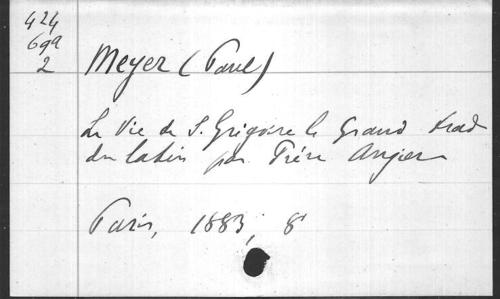 424
699
2
Meyer (Paul)
La Vie de S. Grégoire le Grand trad
du latin par Frère Angier
Paris, 1883, 8°